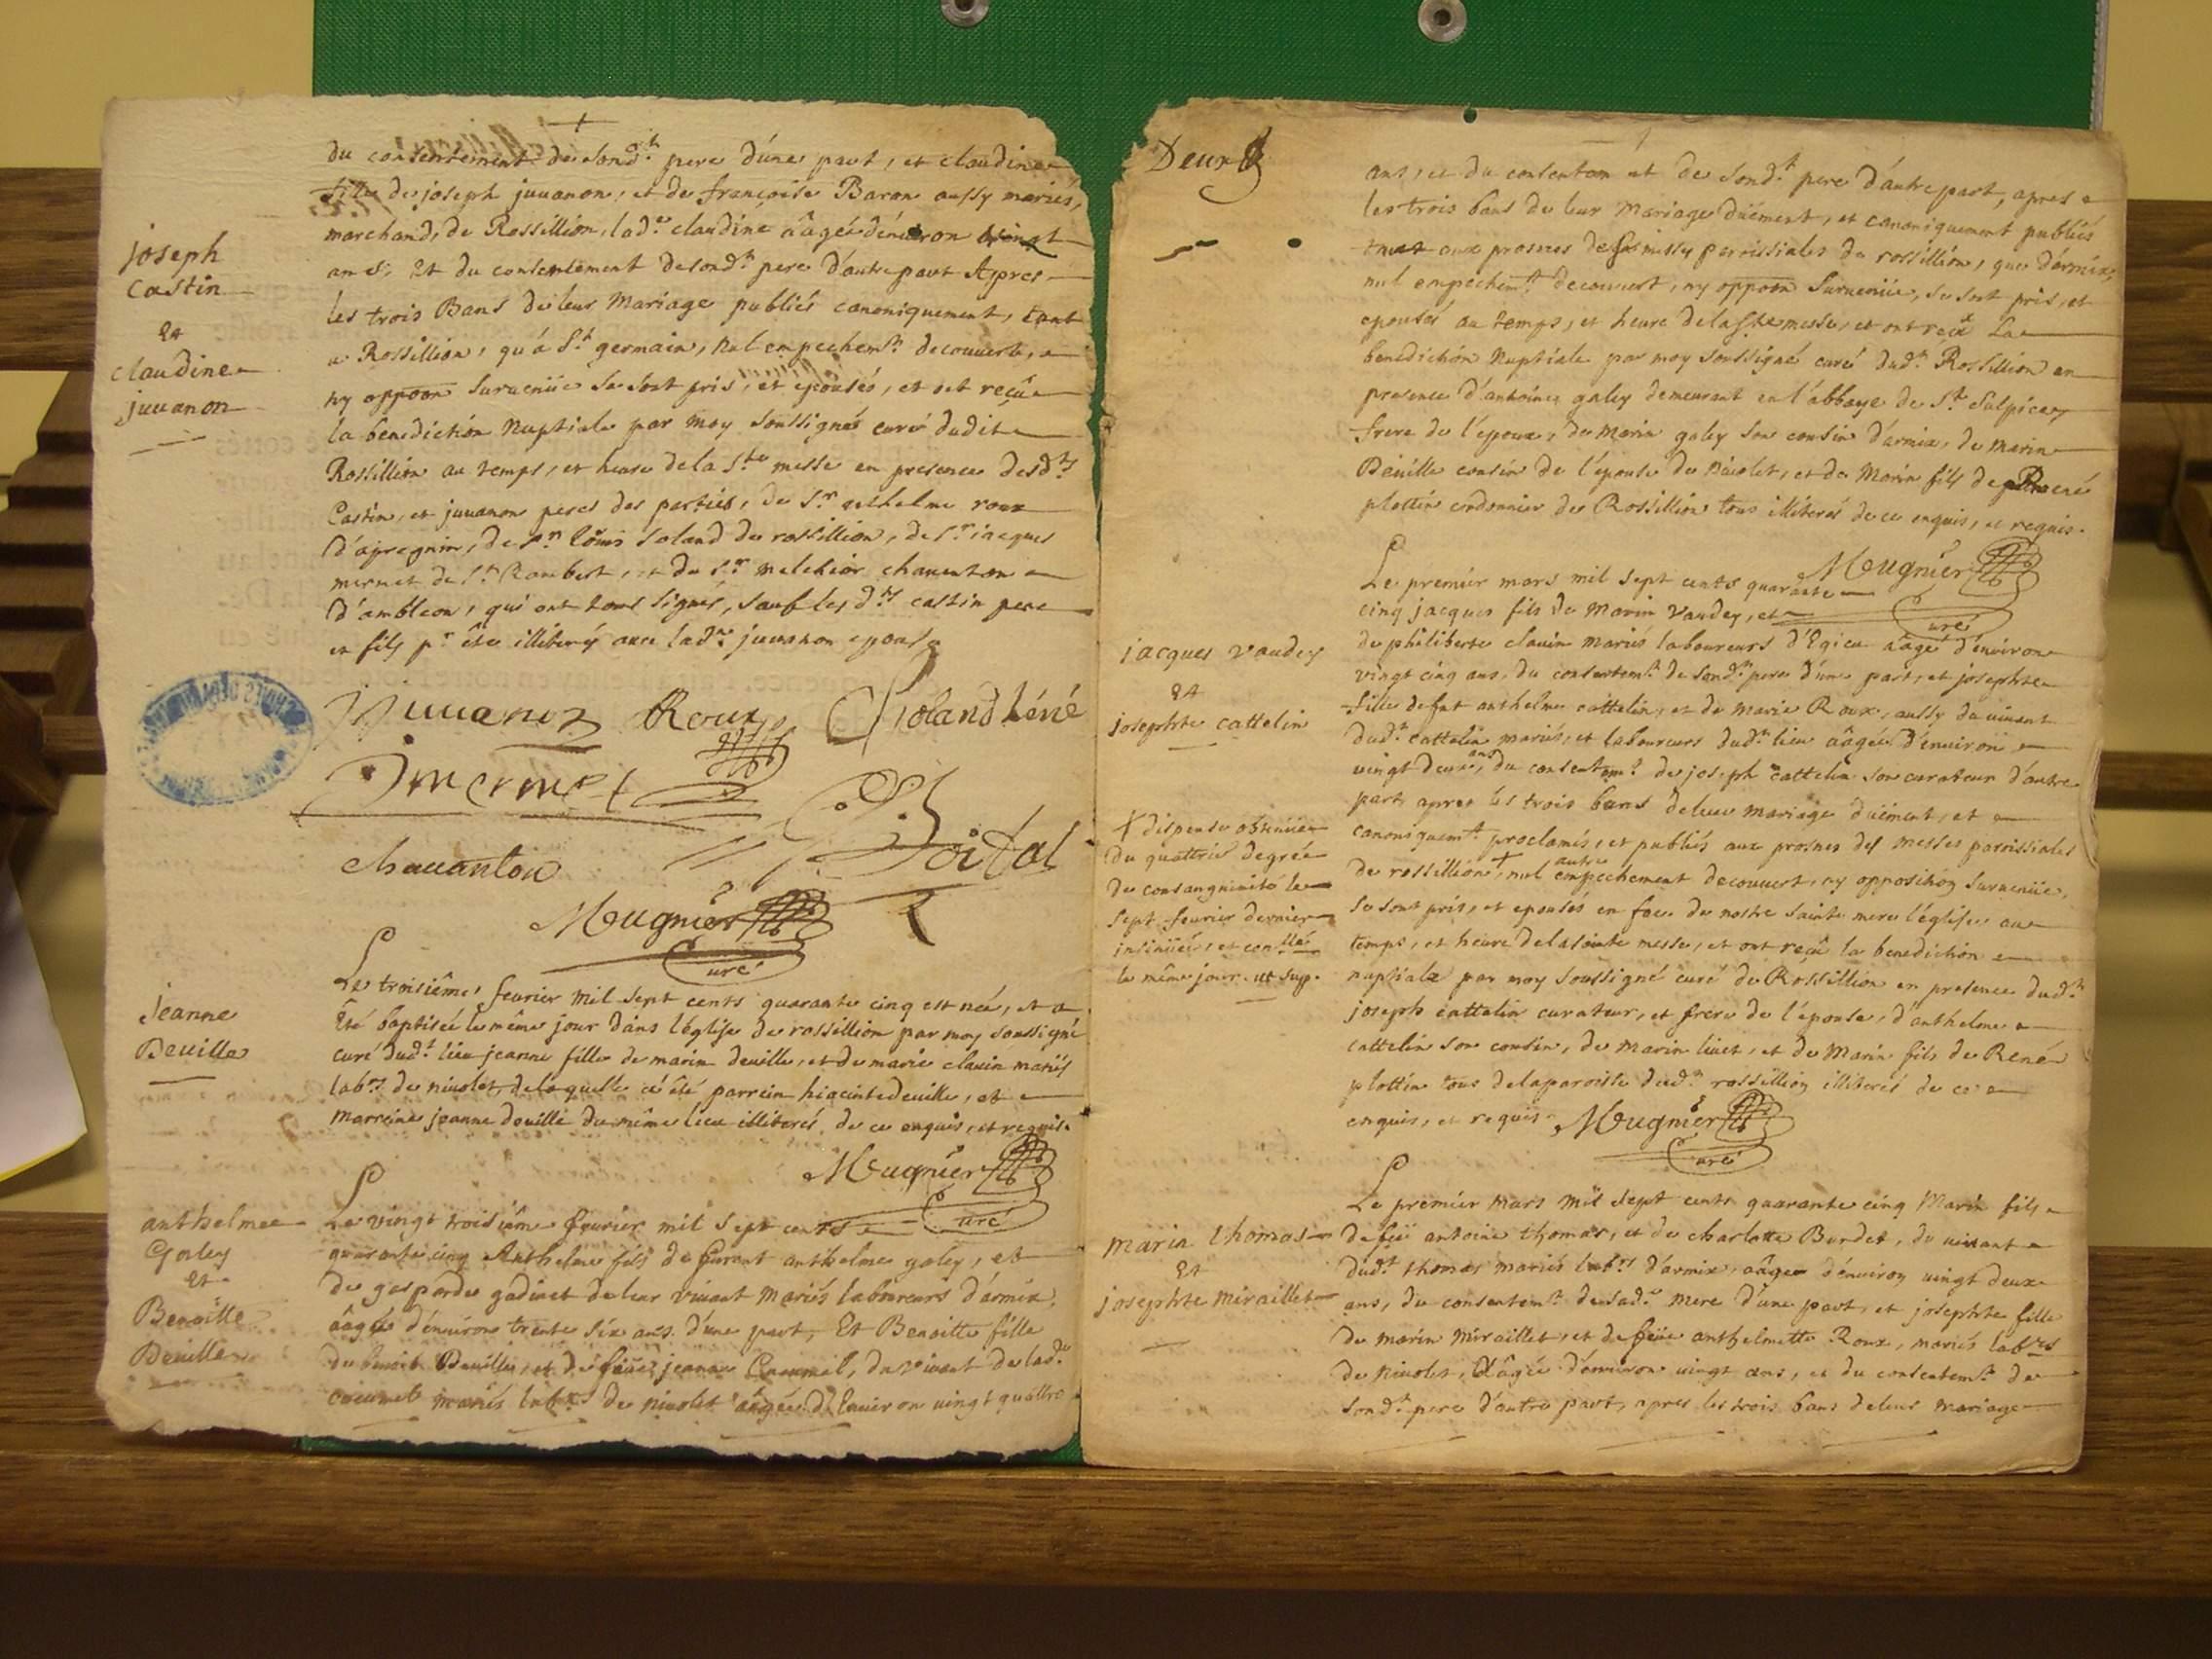 du consentement de sond.t pere d'une part, et claudine
fille de joseph juuanon, et de françoise Baron aussy mariés,
marchand, de Rossillion, lad.e claudine aâgée d'énuiron vingt
ans, Et du consentement de sond.t pere d'autre part Apres
les trois Bans de leur Mariage publiés canoniquement, tant
a Rossillion, qu'á S.t germain, nul empechem.t decouuert,
ny oppoon suruenüe se sont pris, et epousés, et ont reçû
la benediction Nuptiale par moy soussigné curé dudit
Rossillion au temps, et heure de la S.te messe en presence desd.ts
Castin, et juuanon peres des parties, de S.r anthelme roux
d'apregnin, de S.r loüis Soland de rossillion, de S.r jacques
mermet de S.t Rambert, et de S.r melchior chauanton
d'ambleon, qui ont tous signés, sauf les d.ts castin pere
et fils p.r être illiterés auec lad.e juuanon epouse
joseph
castin
et
claudine
juuanon
J Juuanon Roux Soland
Jmermet
chauanton
Mugnier
curé
Le troisiême feurier mil sept cents quarante cinq est née, et a
Eté baptisée le même jour dans l'église de rossillion par moy soussigné
curé dud.t lieu jeanne fille de marin deuille, et de marie clauin mariés
lab.rs de niuolet, de laquelle a été parrein hiacinte deuille, et
marreine jeanne deuille du même lieu illiterés de ce enquis, et requis.
Jeanne
Deuille
Mugnier
curé
Le vingt troisiême feurier mil sept cents
quarante cinq Anthelme fils de furent anthelme galey, et
de gasparde gadinet de leur viuant mariés laboureurs d'armix,
aâgé d'énuiron trente six ans d'une part, Et Benoitte fille
de benoit Deuille, et de feüe jeanne Creumel, du viuant de lad.e
creumel mariés lab.rs de niuolet aâgée d'Enuiron vingt quattre
anthelme
Galey
et
Benoitte
Deuille
Deux
ans, et du consentement de sond.t pere d'autre part, apres
les trois bans de leur Mariage duëment, et canoniquement publiés
tant aux prosnes des messes parroissiales de rossillion, que d'armix,
nul empechem.t decouuert, ny oppoon suruenüe, se sont pris, et
epousés au temps, et heure de la S.te messe, et ont reçû la
benediction Nuptiale par moy soussigné curé dud.t Rossillion en
presence d'antoine galey demeurant en l'abbaye de S.t Sulpice,
frere de l'epoux, de Marin galey son cousin d'armix, de marin
Deuille cousin de l'epouse de Niuolet, et de Marin fils de René
plottin cordonnier de Rossillion tous illiterés de ce enquis, et requis.
Mugnier
curé
Le premier mars mil sept cents quarante
cinq jacques fils de Marin Vaudey, et
de philiberte clauin mariés laboureurs d'Egieu aâgé d'énuiron
vingt cinq ans, du consentem.t de sond.t pere d'une part, et josephte
fille de fut anthelme cattelin, et de marie Roux, aussy du viuant
dud.t cattelin mariés, et laboureurs dud.t lieu aâgée d'enuiron
vingt deux ans, du consentem.t de joseph cattelin son curateur d'autre
part, apres les trois bans de leur mariage duëment, et
canoniquem.t proclamés, et publiés aux prosnes des messes parroissiales
de rossillion +, nul autre empechement decouuert, ny opposition suruenüe,
se sont pris, et epousés en face de nostre sainte mere l'église, au
temps, et heure de la sainte messe, et ont reçû la benediction
nuptiale par moy soussigné curé de Rossillion en presence dud.t
joseph cattelin curateur, et frere de l'épouse, d'anthelme
cattelin son cousin, de Marin liuet, et de Marin fils de René
plottin tous de la paroisse dud.t rossillion illiterés de ce
enquis, et requis. Mugnier
curé
jacques Vaudey
et
josephte cattelin
+ dispense obtenüe
du quattrie degrée
de consanguinité le
sept feurier dernier
insinüée, et
le même jour. ut sup.
Le premier mars mil sept cents quarante cinq Marin fils
de feu antoine thomas, et de charlotte Burdet, du viuant
dud.t thomas mariés lab.rs d'armix, aâgé d'énuiron vingt deux
ans, du consentem.t de sad.e mere d'une part, et josephte fille
de marin miraillet, et de feüe anthelmette Roux, mariés lab.rs
de Niuolet, aâgée d'enuiron vingt ans, et du consentem.t de
sond.t pere d'autre part, apres les trois bans de leur mariage
marin thomas
et
josephte miraillet